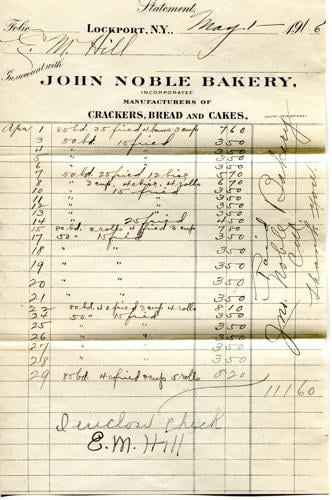 Statement.
Folio
LOCKPORT, N.Y., May 1 1916
E. M. Hill
In account with
JOHN NOBLE BAKERY,
INCORPORATED
MANUFACTURERS OF
CRACKERS, BREAD AND CAKES,
Apr 1 85 bd. 35 fried 4 buns 3 cup 760
3 50 bd. 15 fried 350
" " 350
5 " " 350
6 " " 350
7 50 bd. 25 fried 12 570
8 " 3 cup, 4 4 rolls 670
10 " 15 fried 350
" " 350
12 " " 350
13 " " 350
14 " 25 fried 450
15 80 bd. 3 rolls 4 fried 3 cup 780
17 50 " 15 fried 350
18 " " 350
19 " " 350
20 " " 350
21 " " 350
22 80 bd. 4 fried 3 cup 4 rolls 810
24 50 " 15 fried 350
25 " " 350
26 " " 350
27 " " 350
28 " " 350
29 85 bd. 4 fried 3 cup 5 rolls 820
111 60
Paid
Jno. Noble Bakery
Thank you
I enclose check
E. M. Hill